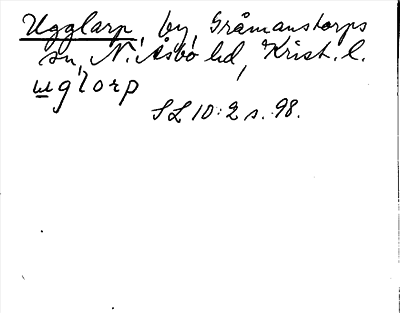 Ugglarp, by, Gråmanstorps
sn, N. Åsbo hd, Krist. l.
uglorp
SL 10:2 s. 98.